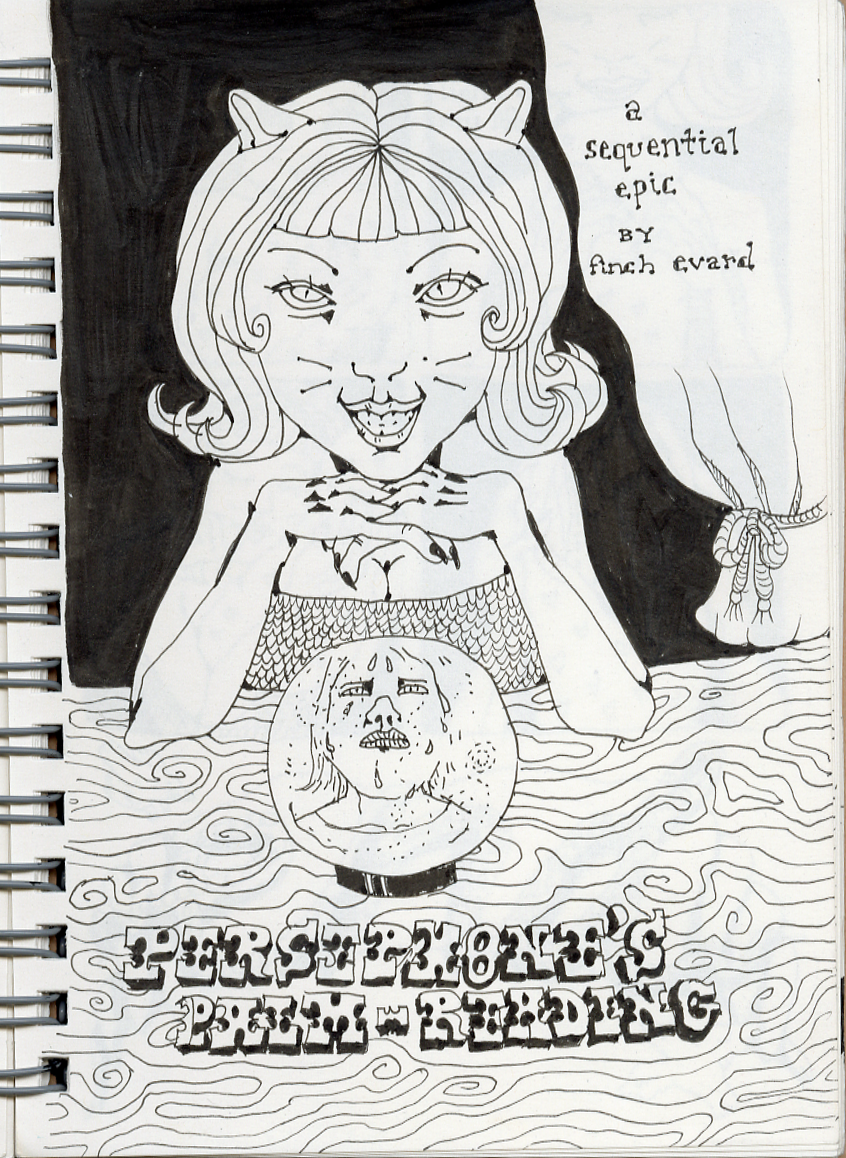 a
sequential
epic
BY
finch evard
PERSEPHONE'S
PALM-READING